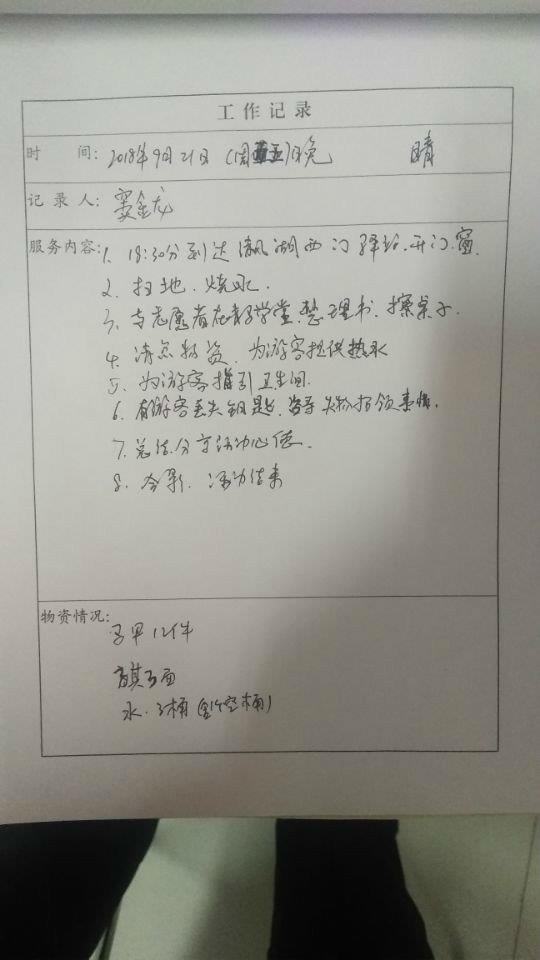 工作记录
时 间: 2018年9月21日 (周五)晚 晴
记录人: 窦金龙
服务内容: 1. 18:30分到达 湖西门驿站.开门.窗.
2. 扫地.烧水.
3. 与志愿者在 学堂.整理书.擦桌子.
4. 清点物资.为游客提供热水
5. 为游客指引卫生间.
6. 有游客丢失钥匙. 失物招领事情.
7. 总结分享活动心德.
8. 合影. 活动结束
物资情况:
马甲12件
旗3面
水.3桶( 空桶)